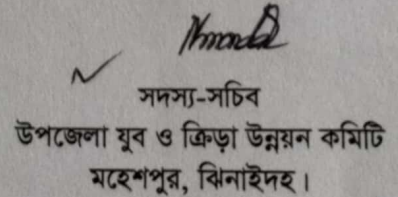 সদস্য-সচিব
উপজেলা যুব ও ক্রিড়া উন্নয়ন কমিটি
মহেশপুর, ঝিনাইদহ।